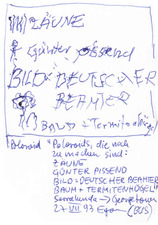 ZÄUNE
Günter pissend
BILD DEUTSCHER
BEAMTER
BAUM + Termitenhügel
Polaroid * Polaroids, die noch
zu machen sind:
ZÄUNE
GÜNTER PISSEND
BILD + DEUTSCHER BEAMTER
BAUM + TERMITENHÜGEL"
Serrekunda → Georgetown
27 VII 93 (BUS)